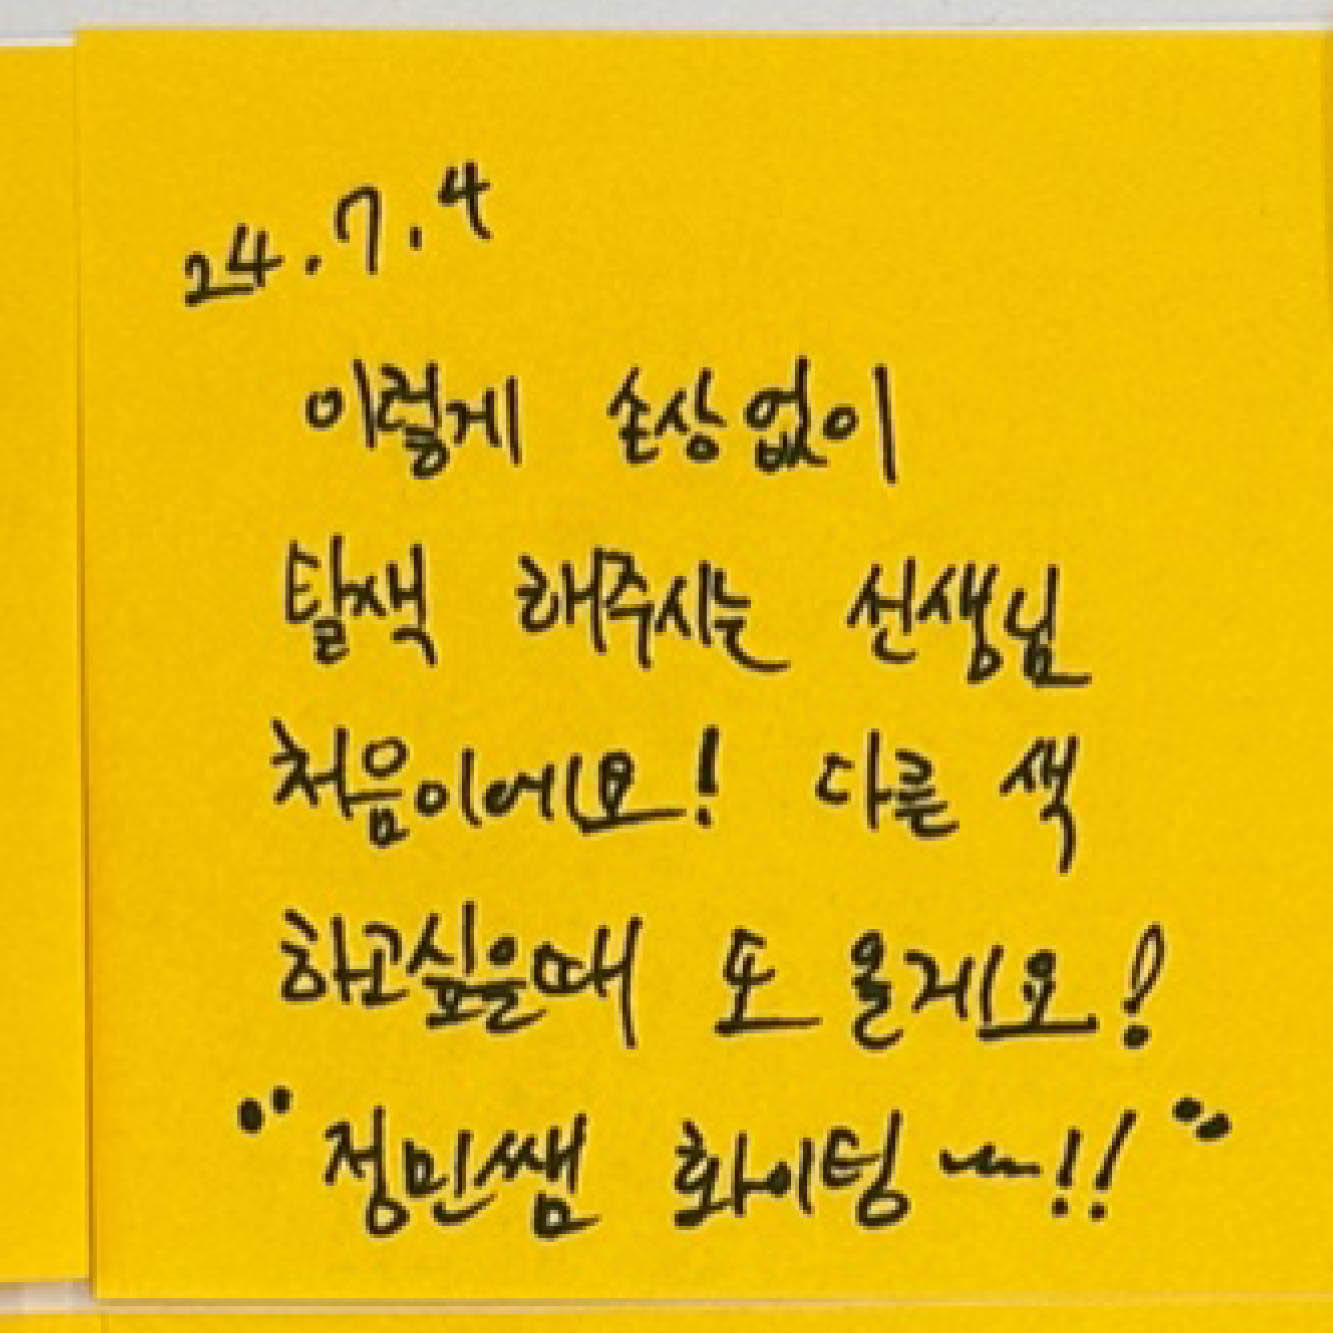 24.7.4
이렇게 손상없이
탈색 해주시는 선생님
처음이에요! 다른 색
하고싶은때 또 올게요!
"정민쌤 화이팅~!!"